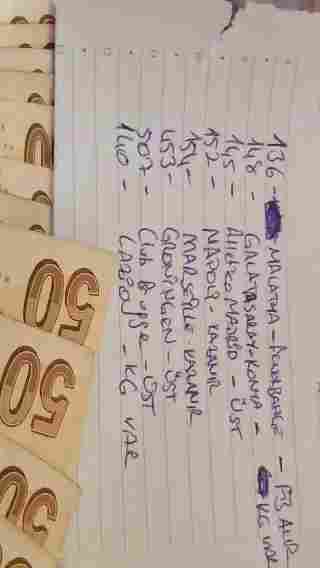 136 - MALATYA - FENERBAHÇE - FB ALIR
148 - GALATASARAY - KONYA - KG VAR
145 - Atletico MADRID - ÜST
152 - NAPOLI - KAZANIR
154 - MARSEILLE - KAZANIR
453 - GRONINGEN - ÜST
507 - Club Brugge - ÜST
140 - LAZIO - KG VAR
50
50
50
50